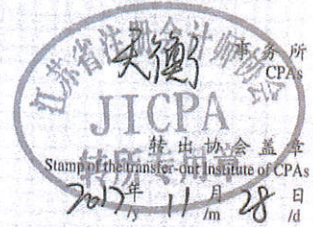 江苏省注册会计师协会
天衡 事务所
CPAs
JICPA
转出协会盖章
转所专用章
Stamp of the transfer-out Institute of CPAs
2017年 11月 28日
/y /m /d